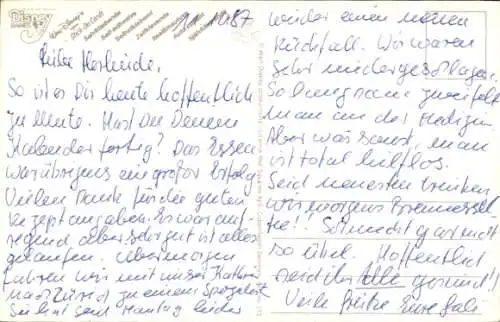 Walt Disney's
9.11.87
Liebe Herlinde,
So ist es Dir heute hoffentlich
zu Mute. Hast Du Deinen
Kalender fertig? Das Essen
war übrigens ein großer Erfolg
Vielen Dank für die guten
Rezeptangaben. Es war auf-
regend aber sehr gut ist alles
gelaufen. Übermorgen
fahren wir mit unser Kathrin
nach Zürich zu einem Spezialist
Sie hat seit Montag leider
wieder einen neuen
Rückfall. Wir waren
sehr niedergeschlagen.
So langsam zweifelt
man an der Medizin
Aber was sonst, man
ist total hilflos.
Seit neuesten trinken
wir morgens Brennessel-
tee! Schmeckt gar nicht
so übel. Hoffentlich
seid ihr alle gesund!!
Viele Grüße Eure Gabi